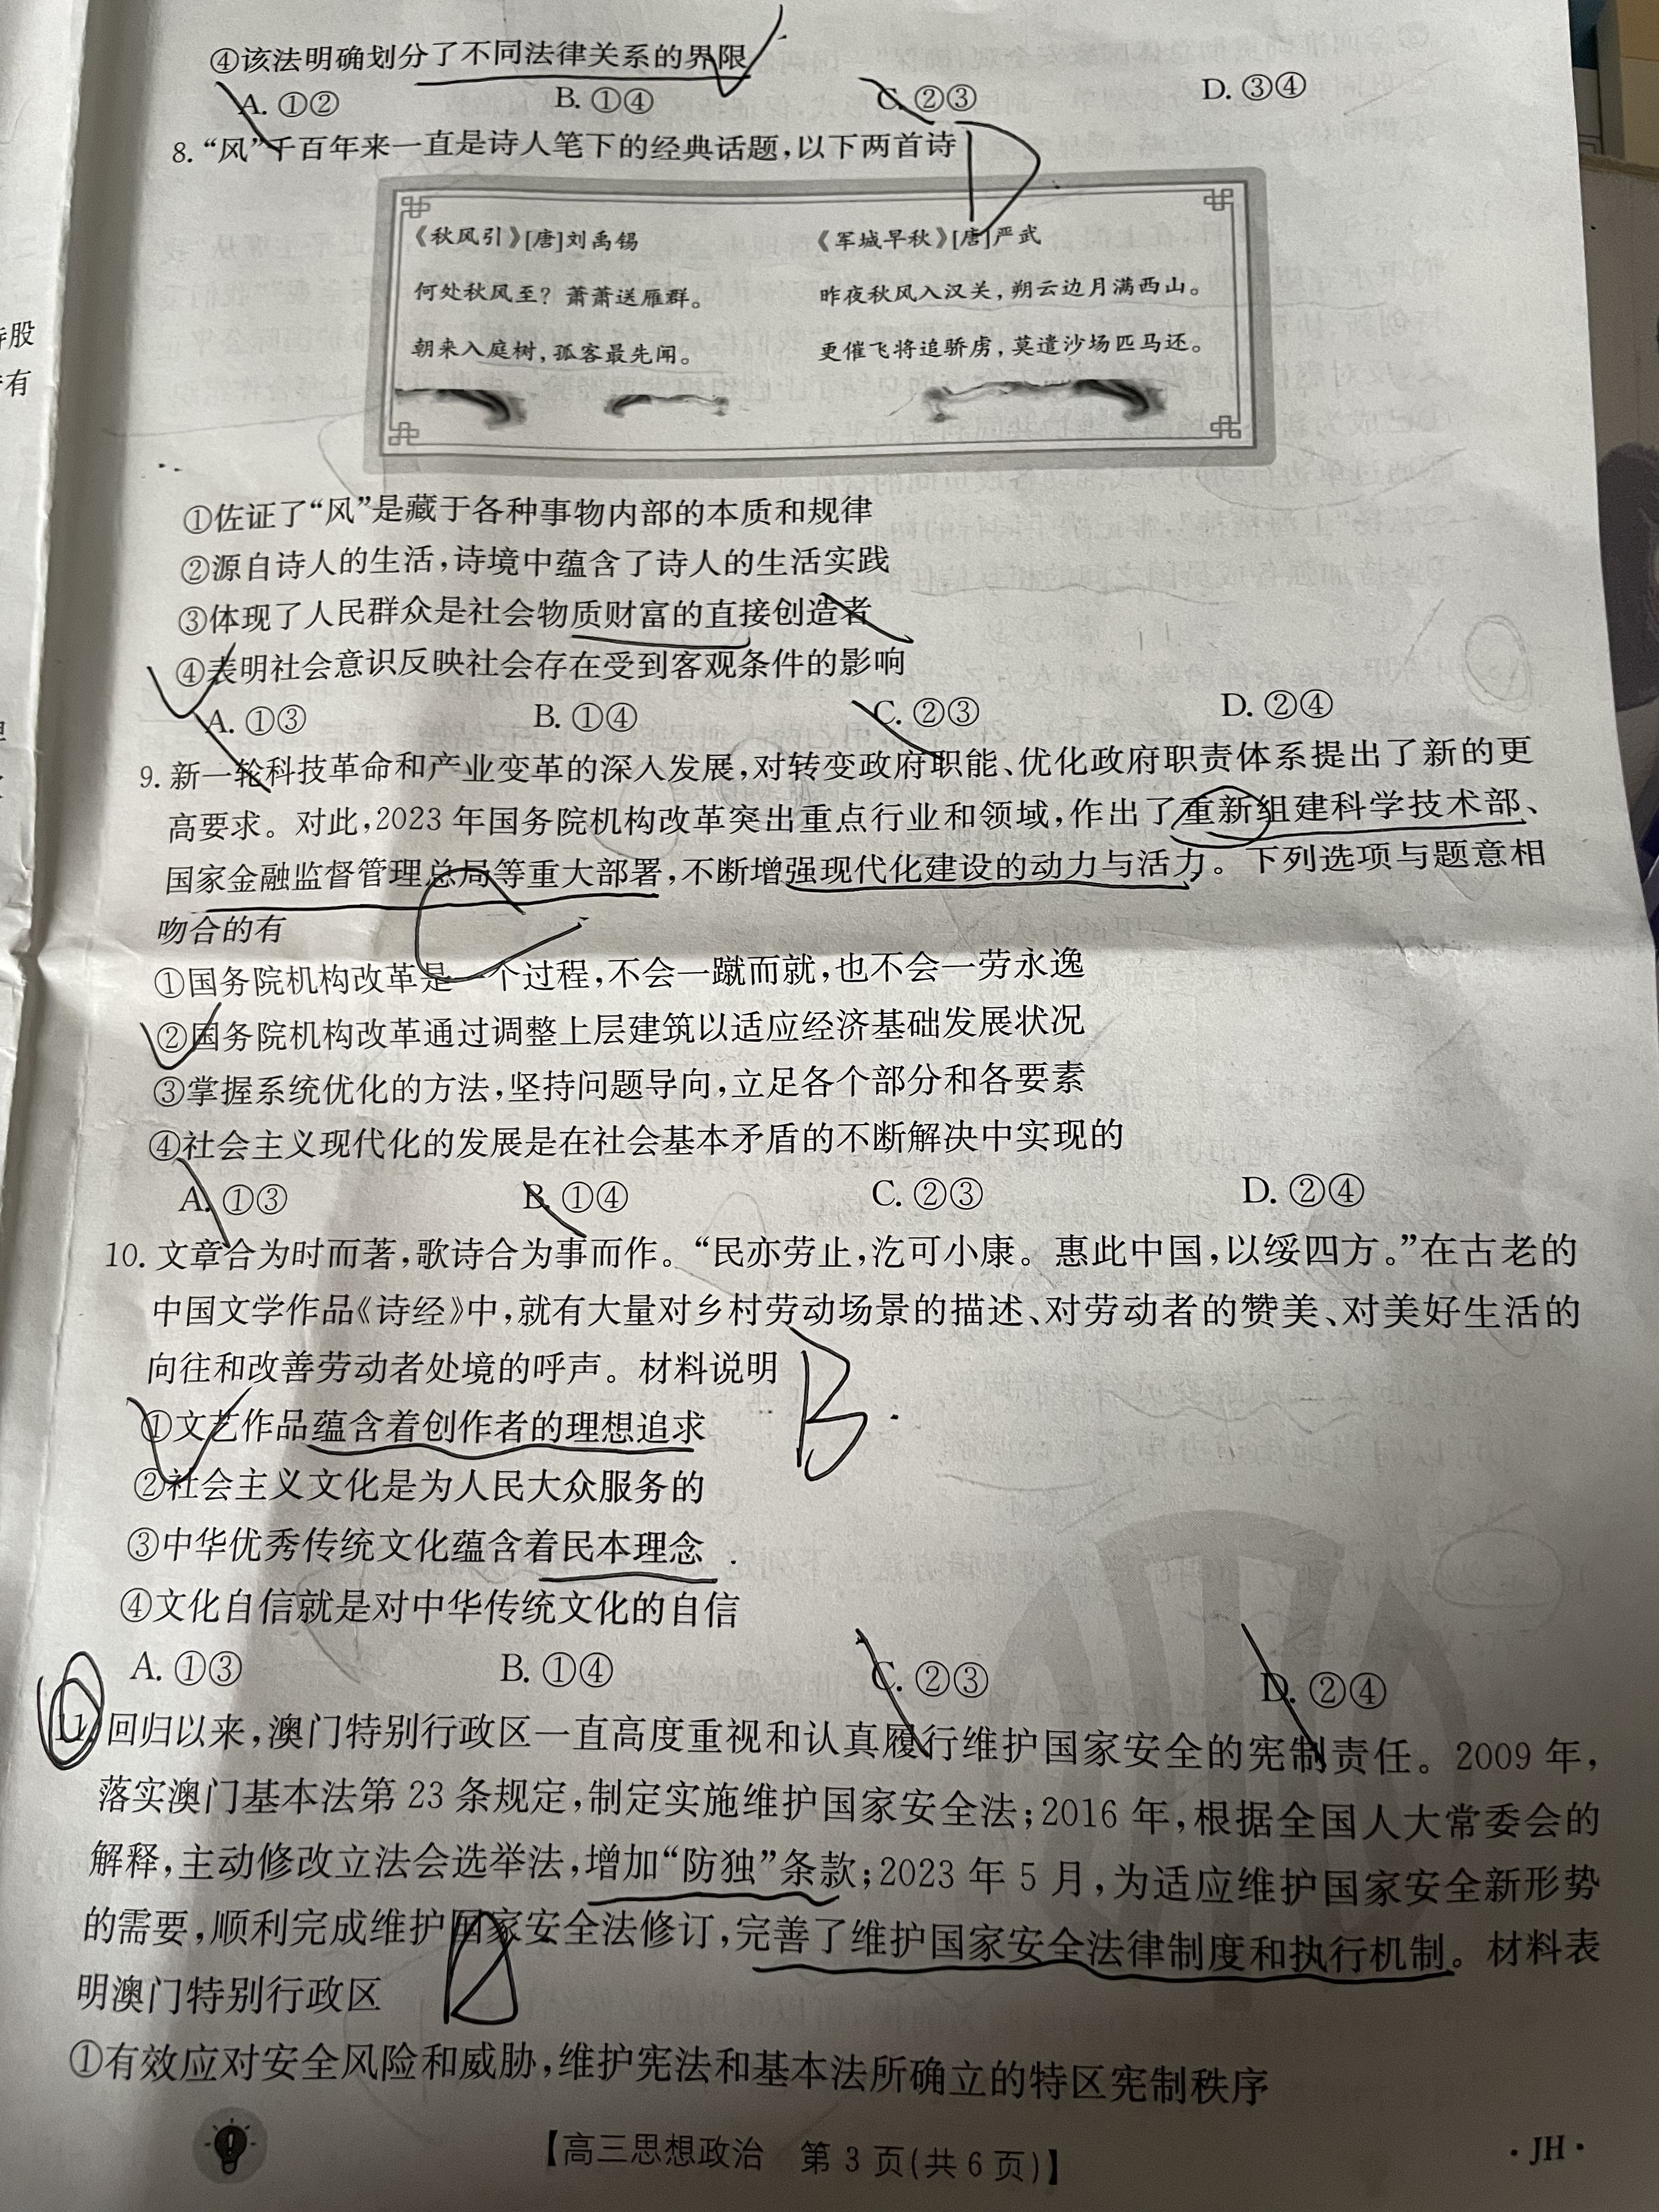 ④该法明确划分了不同法律关系的界限
A. ①② B. ①④ C. ②③ D. ③④
8. “风”千百年来一直是诗人笔下的经典话题,以下两首诗
D
《秋风引》[唐]刘禹锡
何处秋风至?萧萧送雁群。
朝来入庭树,孤客最先闻。
《军城早秋》[唐]严武
昨夜秋风入汉关,朔云边月满西山。
更催飞将追骄虏,莫遣沙场匹马还。
①佐证了“风”是藏于各种事物内部的本质和规律
②源自诗人的生活,诗境中蕴含了诗人的生活实践
③体现了人民群众是社会物质财富的直接创造者
④表明社会意识反映社会存在受到客观条件的影响
A. ①③ B. ①④ C. ②③ D. ②④
9. 新一轮科技革命和产业变革的深入发展,对转变政府职能、优化政府职责体系提出了新的更
高要求。对此,2023年国务院机构改革突出重点行业和领域,作出了重新组建科学技术部、
国家金融监督管理总局等重大部署,不断增强现代化建设的动力与活力。下列选项与题意相
吻合的有
C
①国务院机构改革是一个过程,不会一蹴而就,也不会一劳永逸
②国务院机构改革通过调整上层建筑以适应经济基础发展状况
③掌握系统优化的方法,坚持问题导向,立足各个部分和各要素
④社会主义现代化的发展是在社会基本矛盾的不断解决中实现的
A. ①③ B. ①④ C. ②③ D. ②④
10. 文章合为时而著,歌诗合为事而作。“民亦劳止,汔可小康。惠此中国,以绥四方。”在古老的
中国文学作品《诗经》中,就有大量对乡村劳动场景的描述、对劳动者的赞美、对美好生活的
向往和改善劳动者处境的呼声。材料说明
B
①文艺作品蕴含着创作者的理想追求
②社会主义文化是为人民大众服务的
③中华优秀传统文化蕴含着民本理念
④文化自信就是对中华传统文化的自信
A. ①③ B. ①④ C. ②③ D. ②④
11. 回归以来,澳门特别行政区一直高度重视和认真履行维护国家安全的宪制责任。2009年,
落实澳门基本法第23条规定,制定实施维护国家安全法;2016年,根据全国人大常委会的
解释,主动修改立法会选举法,增加“防独”条款;2023年5月,为适应维护国家安全新形势
的需要,顺利完成维护国家安全法修订,完善了维护国家安全法律制度和执行机制。材料表
明澳门特别行政区
①有效应对安全风险和威胁,维护宪法和基本法所确立的特区宪制秩序
【高三思想政治 第3页(共6页)】
·JH·